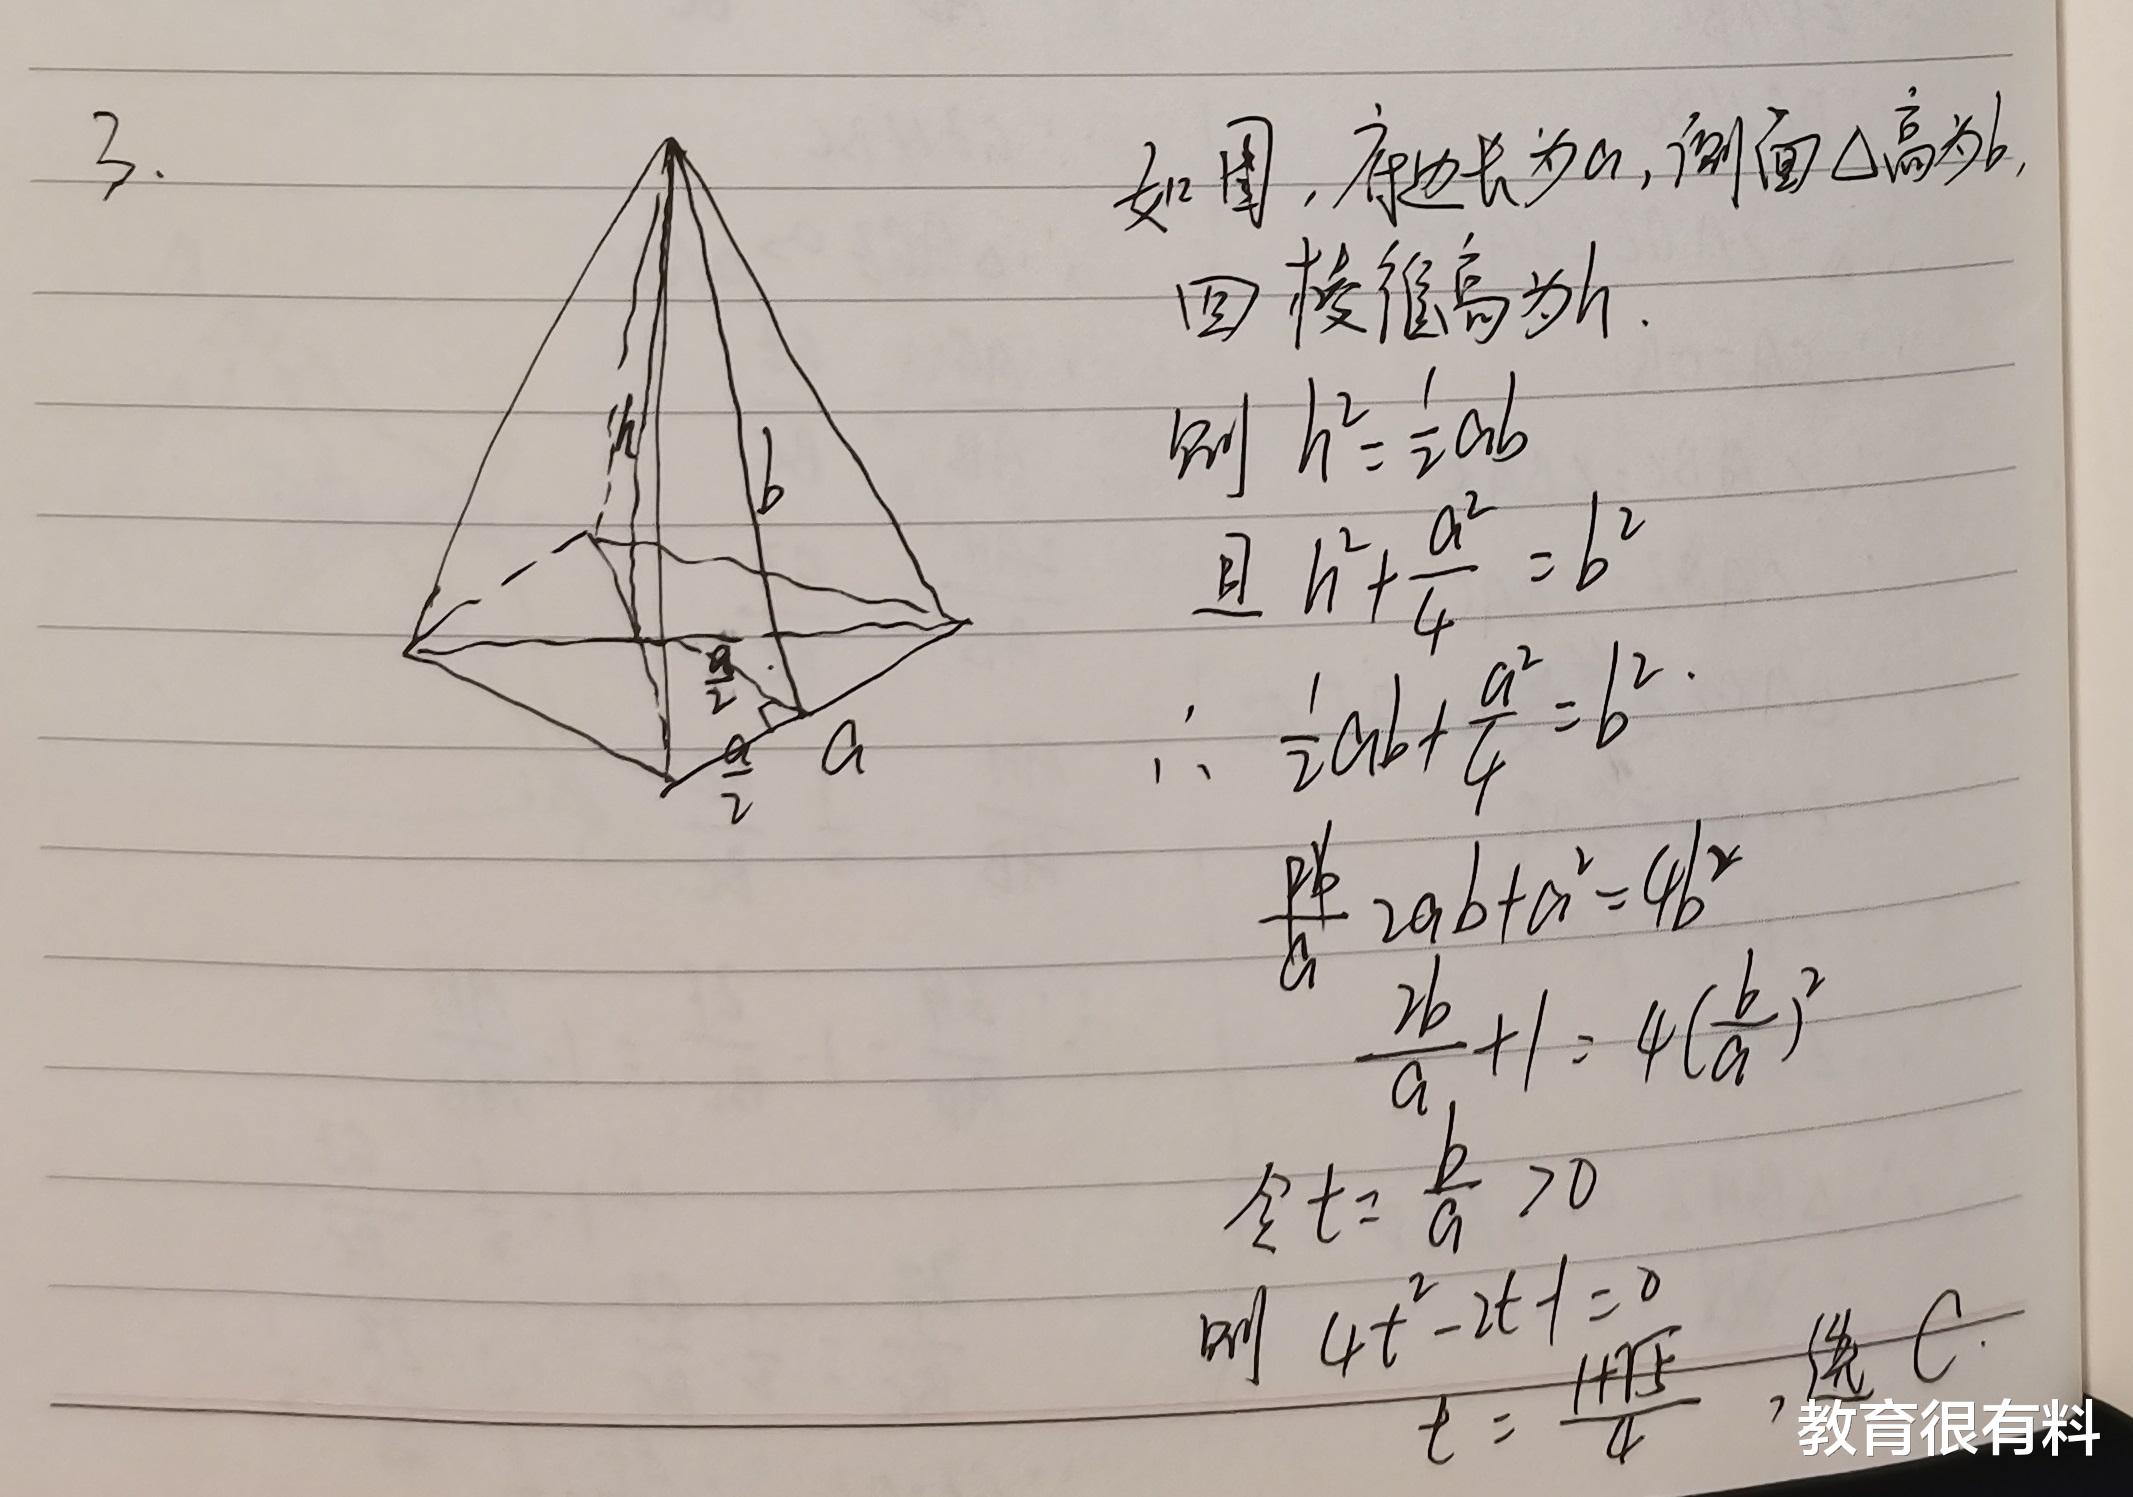 3.
如图，底边长为a，侧面△高为b，
四棱锥高为h.
则 h²=½ab
且 h²+a²/4=b²
∴ ½ab+a²/4=b².
2ab+a²=4b²
2b/a+1=4(b/a)²
令t=b/a>0
则 4t²-2t-1=0
t=(1+√5)/4，选C.
h
b
a/2
a/2
a
教育很有料